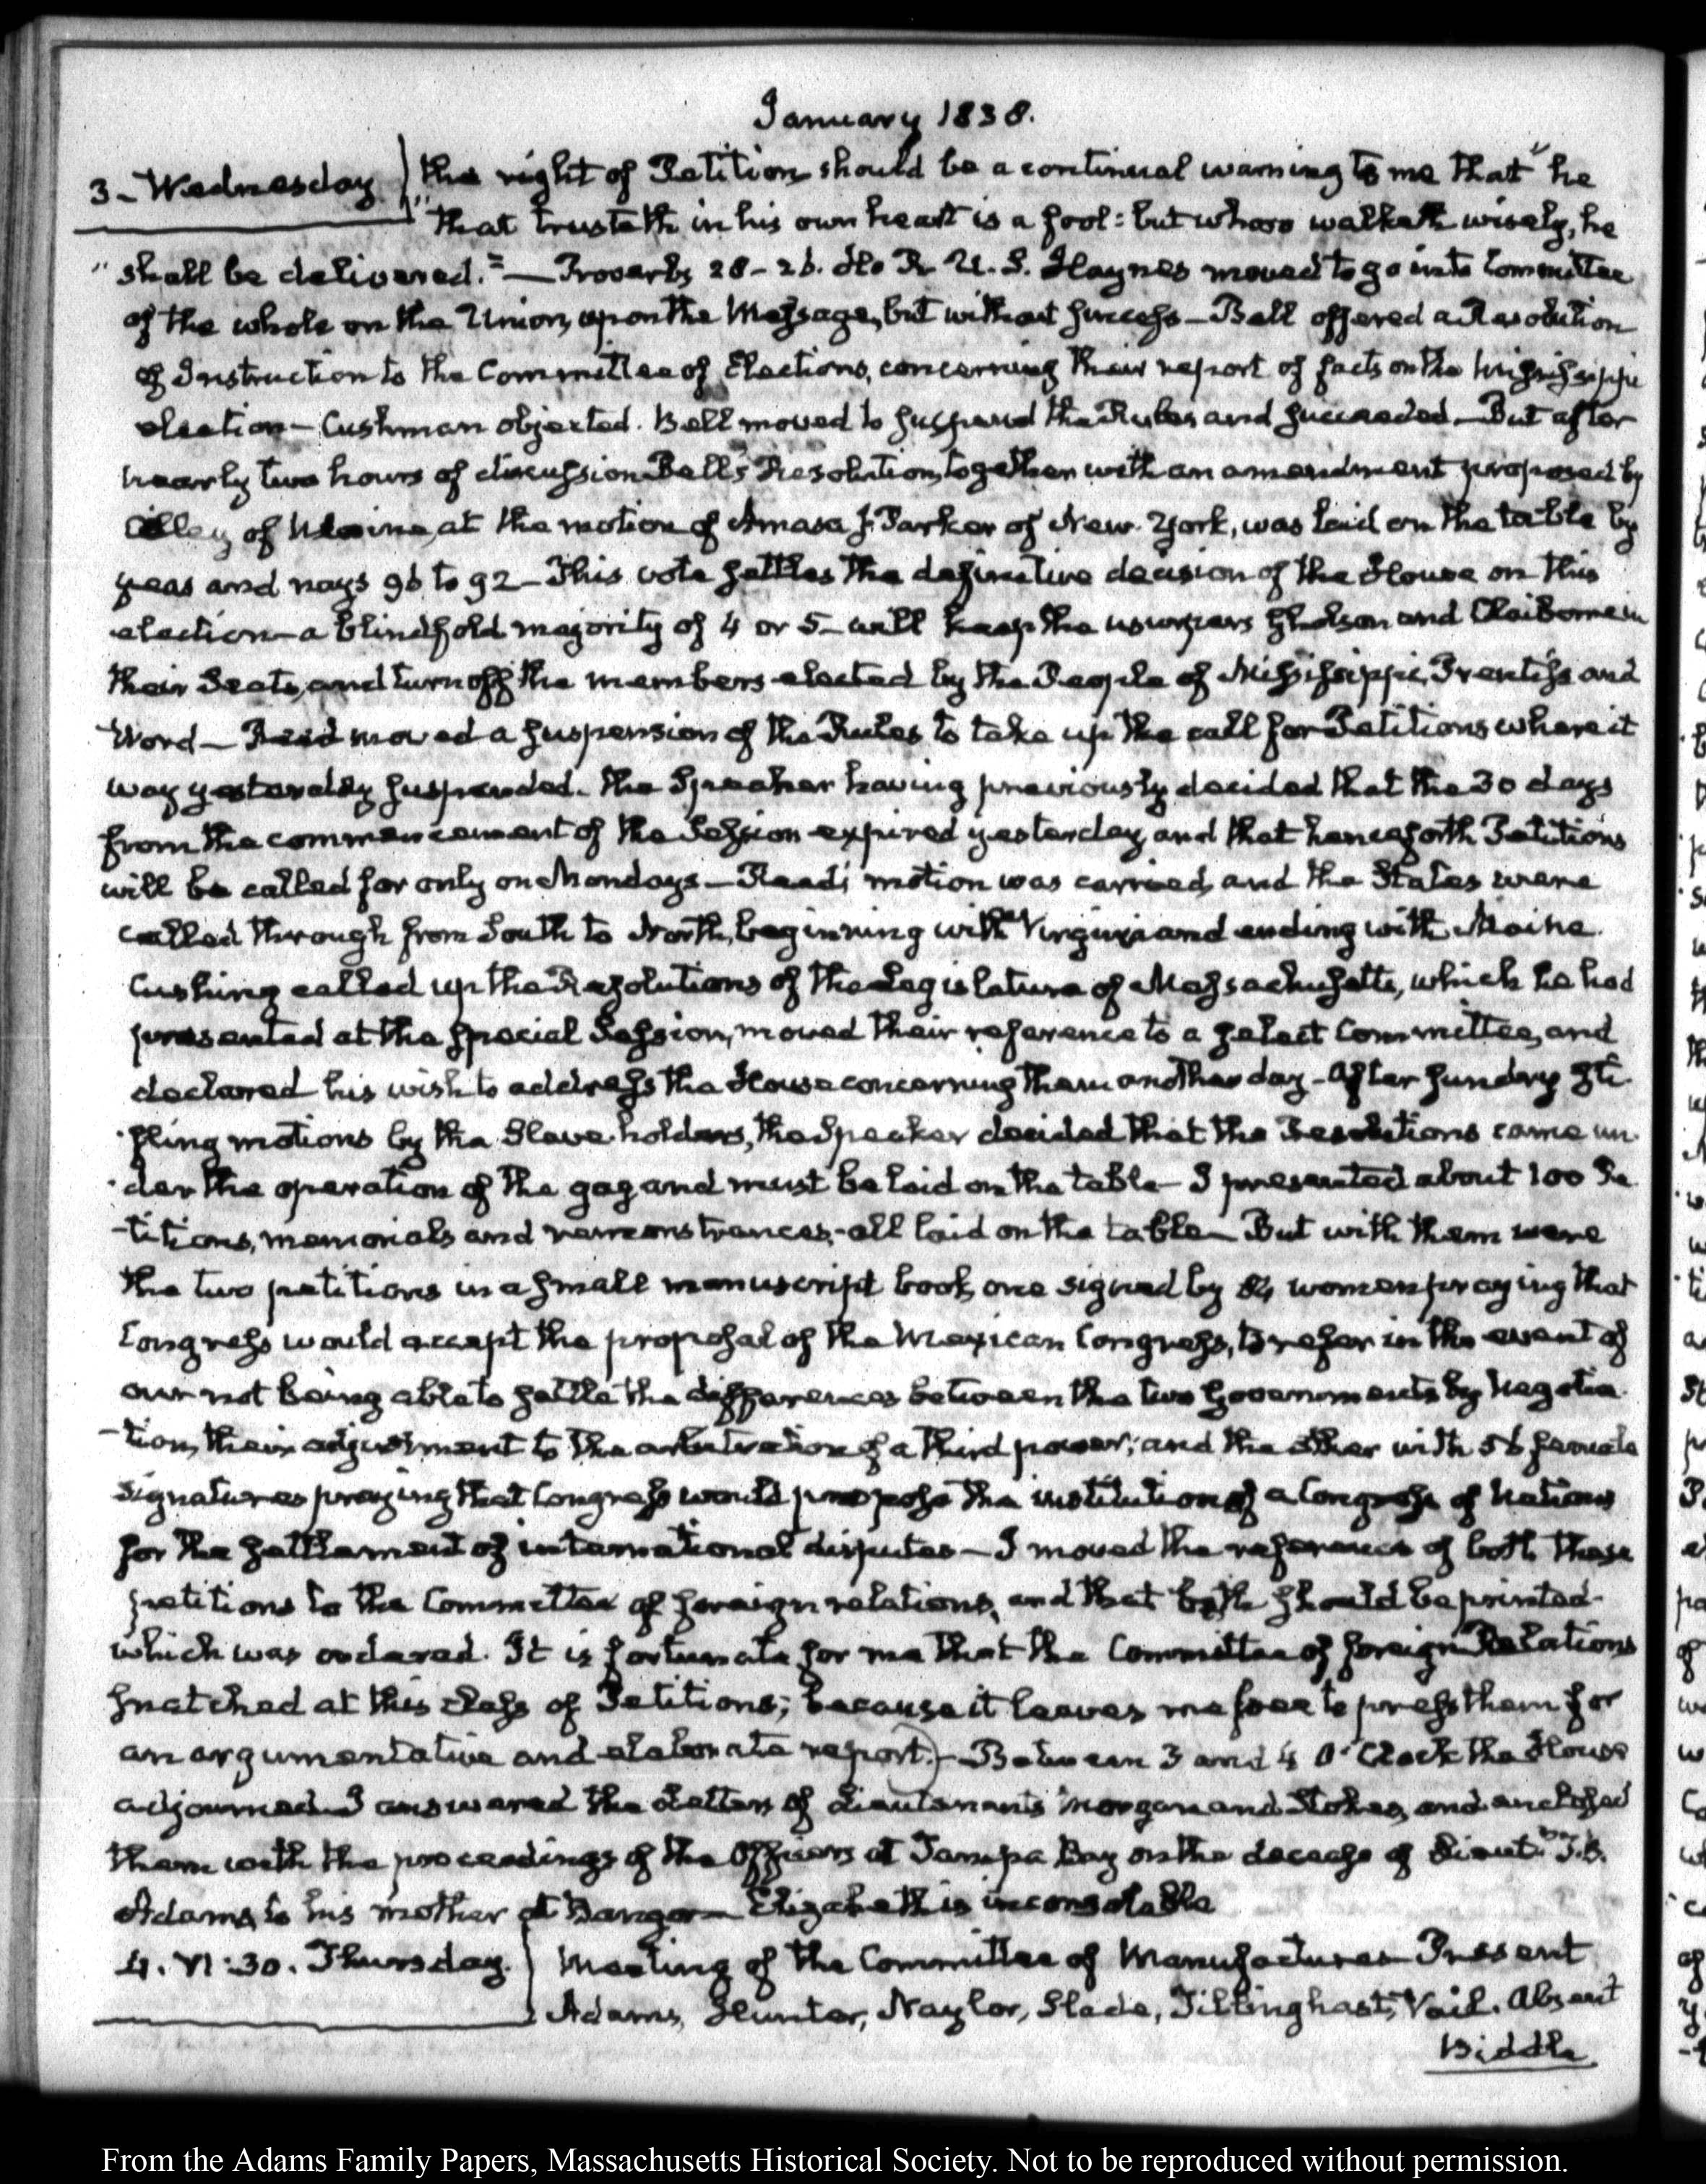 January 1838.
3– Wednesday
the right of Petition should be a continual warning to me that "he
"that trusteth in his own heart is a fool: but whoso walketh wisely, he
"shall be delivered."— Proverbs 28–26. Ho R U.S. Haynes moved to go into Committee
of the whole on the Union, upon the Message, but without success– Bell offered a Resolution
of Instruction to the Committee of Elections, concerning their report of facts on the Mississippi
election– Cushman objected. Bell moved to suspend the Rules and succeeded.– But after
nearly two hours of discussion Bell's Resolution, together with an amendment proposed by
Cilley of Maine, at the motion of Amasa J. Parker of New-York, was laid on the table by
yeas and nays 96 to 92– This vote settles the definitive decision of the House on this
election– a blindfold majority of 4 or 5– will keep the usurpers Gholson and Claiborne in
their Seats, and turn off the members elected by the People of Mississippi, Prentiss and
Word– Read moved a suspension of the Rules to take up the call for Petitions where it
way yesterday suspended. The Speaker having previously decided that the 30 days
from the commencement of the Session expired yesterday, and that henceforth Petitions
will be called for only on Mondays– Reads motion was carried, and the States were
called through from South to North, beginning with Virginia and ending with Maine.
Cushing called up the Resolutions of the Legislature of Massachusetts, which he had
presented at the special Session, moved their reference to a select Committee, and
declared his wish to address the House concerning them another day– After sundry sti-
fling motions by the Slave-holders, the Speaker decided that the Resolutions came un-
der the operation of the gag and must be laid on the table– I presented about 100 Pe
-titions, memorials and remonstrances,– all laid on the table– But with them were
the two petitions in a small manuscript book, one signed by 84 women praying that
Congress would accept the proposal of the Mexican Congress, to refer in the event of
our not being able to settle the differences between the two Governments by Negotia-
-tion, their adjustment to the arbitration of a third power; and the other with 56 female
signatures praying that Congress would propose the institution of a Congress of Nations
for the settlement of international disputes– I moved the reference of both these
petitions to the Committee of foreign relations, and that both should be printed–
which was ordered. It is fortunate for me that the Committee of foreign Relations
snatched at this class of Petitions; because it leaves me free to press them for
an argumentative and elaborate report.)– Between 3 and 4 O'Clock the House
adjourned– I answered the Letters of Lieutenants Morgan and Stokes, and enclosed
them with the proceedings of the Officers at Tampa Bay on the decease of Lieut. T.B.
Adams, to his mother at Bangor– Elizabeth is inconsolable
4. VI:30. Thursday.
Meeting of the Committee of Manufactures– Present
Adams, Hunter, Naylor, Slade, Tillinghast, Vail. Absent
Biddle
From the Adams Family Papers, Massachusetts Historical Society. Not to be reproduced without permission.